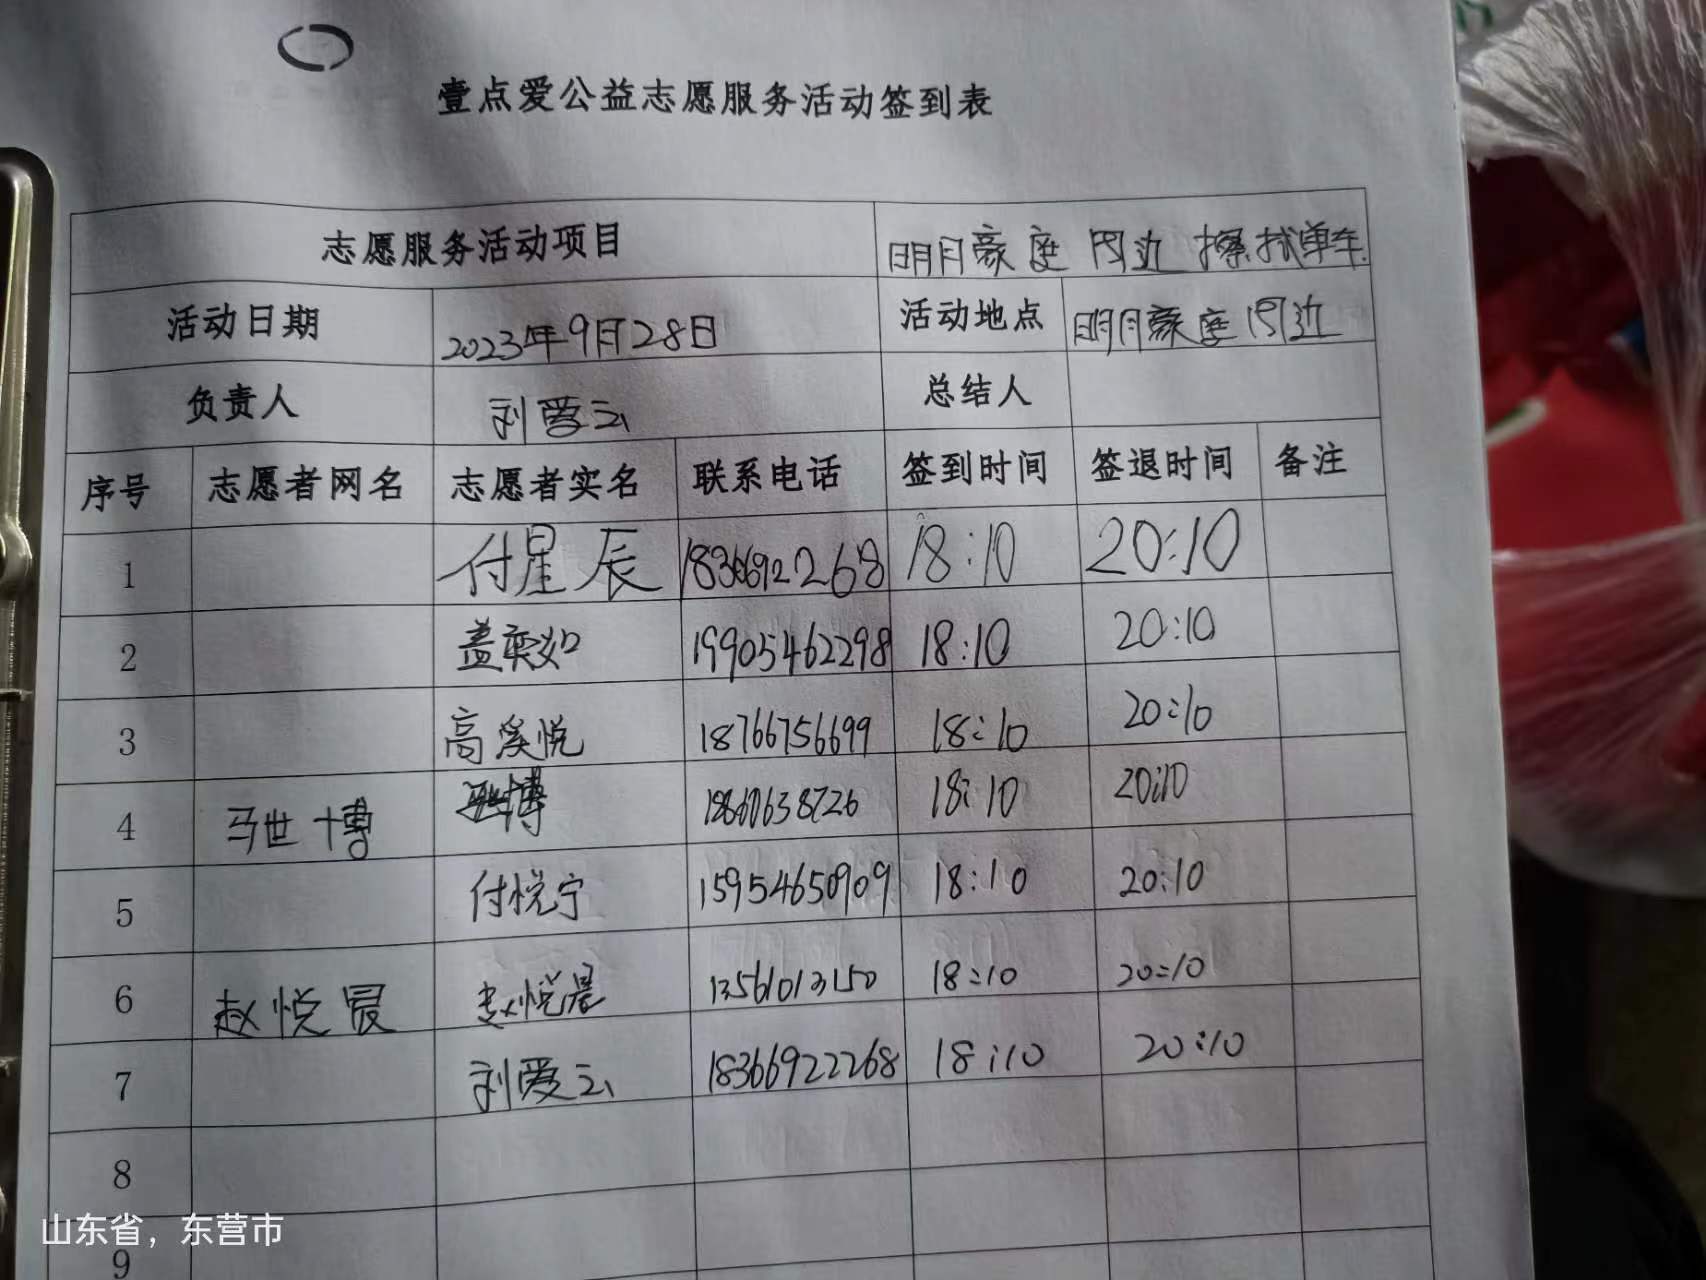 壹点爱公益志愿服务活动签到表
志愿服务活动项目 明月豪庭 周边 擦拭单车
活动日期 2023年9月28日 活动地点 明月豪庭周边
负责人 刘爱云 总结人
序号 志愿者网名 志愿者实名 联系电话 签到时间 签退时间 备注
1 付星辰 18:10 20:10
2 盖奕如 19905462298 18:10 20:10
3 高溪悦 18766756699 18:10 20:10
4 马世博 18:10 20:10
5 付悦宁 15954650909 18:10 20:10
6 赵悦晨 赵悦晨 13561013150 18:10 20:10
7 刘爱云 18366922268 18:10 20:10
8
9
山东省，东营市